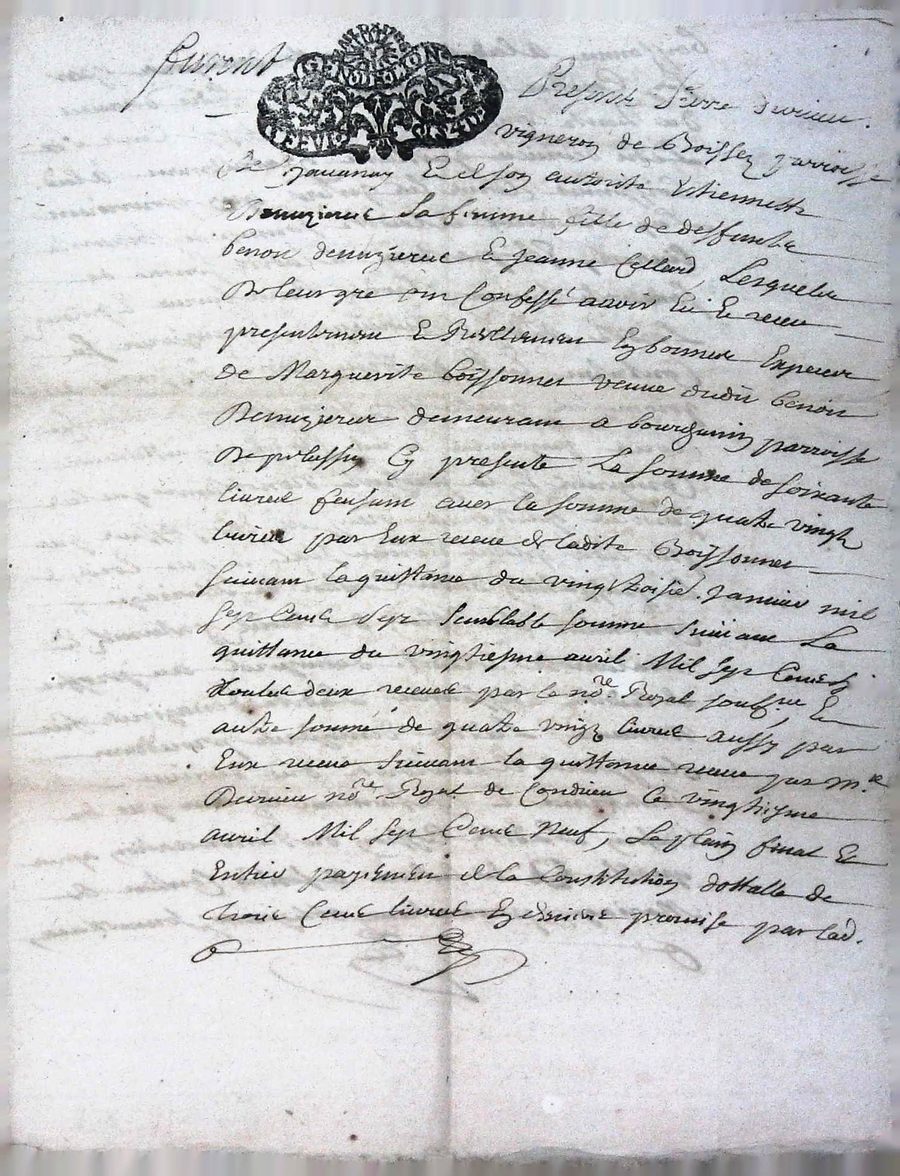 furent
GEN DE LYON
Present Pierre
vigneron de Boissey parroisse
de Et son autorite Ethiennette
Demuzieres sa femme fille de deffuncts
benoit demuzieres Et Jeanne Collard, Lesquels
De leur gre ont Confessé avoir Eu Et receu
presentement Et Reellement En bonnes Especes
de Marguerite boissonnet veuve dudit benoit
Demuzieres demeurant a bourgunin parroisse
De Cy presente La somme de soixante
livres faisant avec la somme de quatre vingt
livres par Eux receue de ladite Boissonnet
suivant la quittance du vingt troise. Janvier mil
sept Cents sept semblable somme suivant La
quittance du vingtiesme avril Mil sept Cents
toutes deux receues par le no.re Royal soub.ne, Et
autre somme de quatre vingt livres aussy par
Eux receue suivant la quittance receue par m.e
no.re Royal de Condrieu le vingtiesme
avril Mil sept Cents Neuf, Le plain final Et
Entier payement de la Constitution dottalle de
trois Cents livres promise par lad.